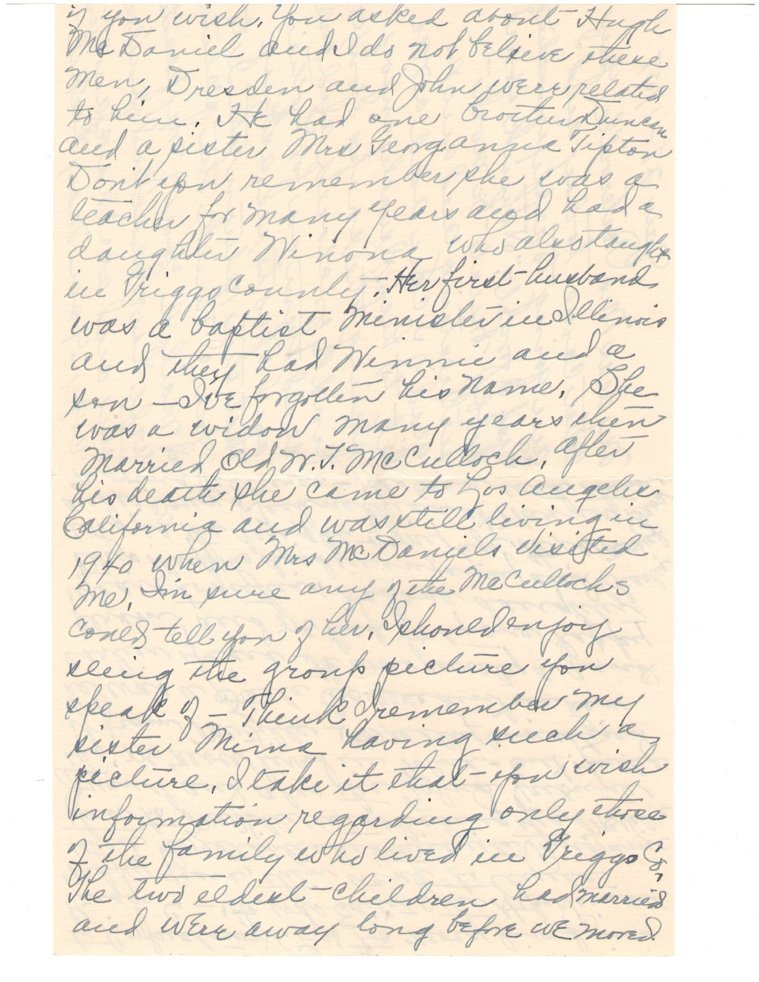 if you wish. You asked about Hugh
McDaniel and I do not believe these
men, Dresden and John were related
to him. He had one brother Duncan
and a sister Mrs Georganna Tipton
Don't you remember she was a
teacher for many years and had a
daughter Winona who also taught
in Trigg County. Her first husband
was a baptist minister in Illinois
and they had Winnie and a
son - I've forgotten his name. She
was a widow many years then
married old W. T. McCulloch. After
his death she came to Los Angeles
California and was still living in
1940 when Mrs McDaniels visited
me. I'm sure any of the McCullochs
could tell you of her. I should enjoy
seeing the group picture you
speak of - Think I remember my
sister Mima having such a
picture. I take it that you wish
information regarding only those
of the family who lived in Trigg Co.
The two eldest children had married
and were away long before we moved